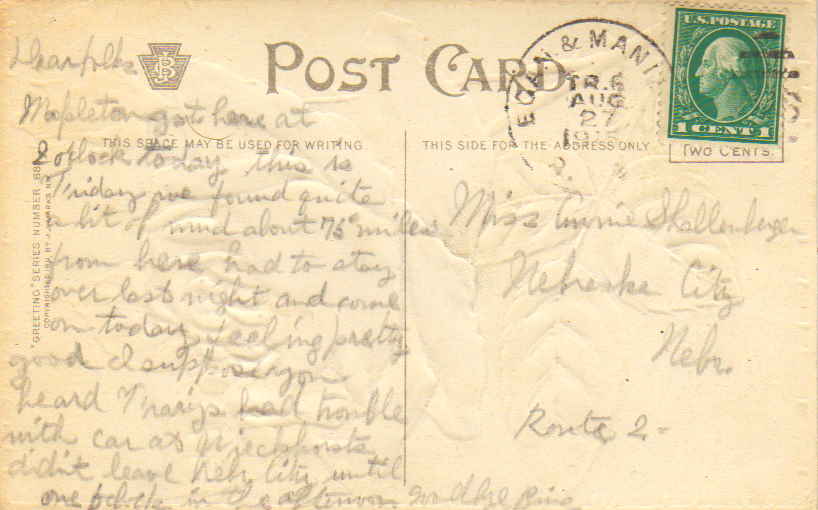 POST CARD
THIS SPACE MAY BE USED FOR WRITING
THIS SIDE FOR THE ADDRESS ONLY
U.S. POSTAGE
1 CENT 1
TWO CENTS.
& MAN
TR. 6
AUG
27
"GREETING" SERIES NUMBER 68
Dear folks
Mapleton got here at
2 oclock today this is
Friday we found quite
a bit of mud about 75 miles
from here had to stay
over last night and come
on today feeling pretty
good I suppose you
heard had trouble
with car at
didit leave Nebr City until
one oclock in the afternoon
Miss Annie Shallenberger
Nebraska City
Nebr.
Route 2-